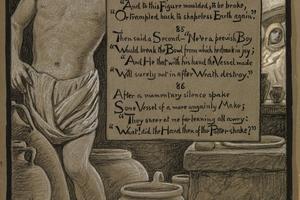 "And to this Figure moulded, to be broke,
Or trampled back to shapeless Earth again."
85
Then said a Second—"Ne'er a peevish Boy
"Would break the Bowl from which he drank in joy;
"And He that with his hand the Vessel made
"Will surely not in after Wrath destroy."
86
After a momentary silence spake
Some Vessel of a more ungainly Make;
"They sneer at me for leaning all awry:
"What! did the Hand then of the Potter shake?"